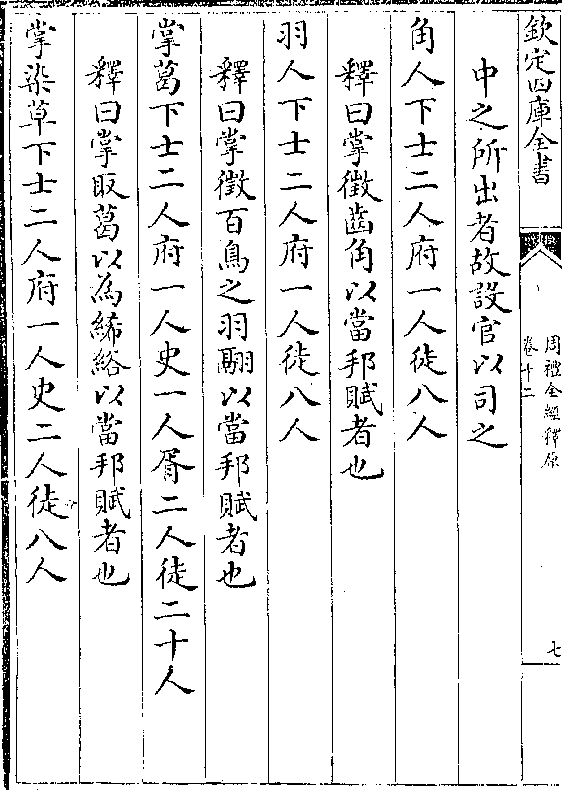 欽定四庫全書
周禮全經釋原
卷十二
七
中之所出者故設官以司之
角人下士二人府一人徒八人
釋曰掌徵齒角以當邦賦者也
羽人下士二人府一人徒八人
釋曰掌徵百鳥之羽翮以當邦賦者也
掌葛下士二人府一人史一人胥二人徒二十人
釋曰掌取葛以為絺綌以當邦賦者也
掌染草下士二人府一人史二人徒八人